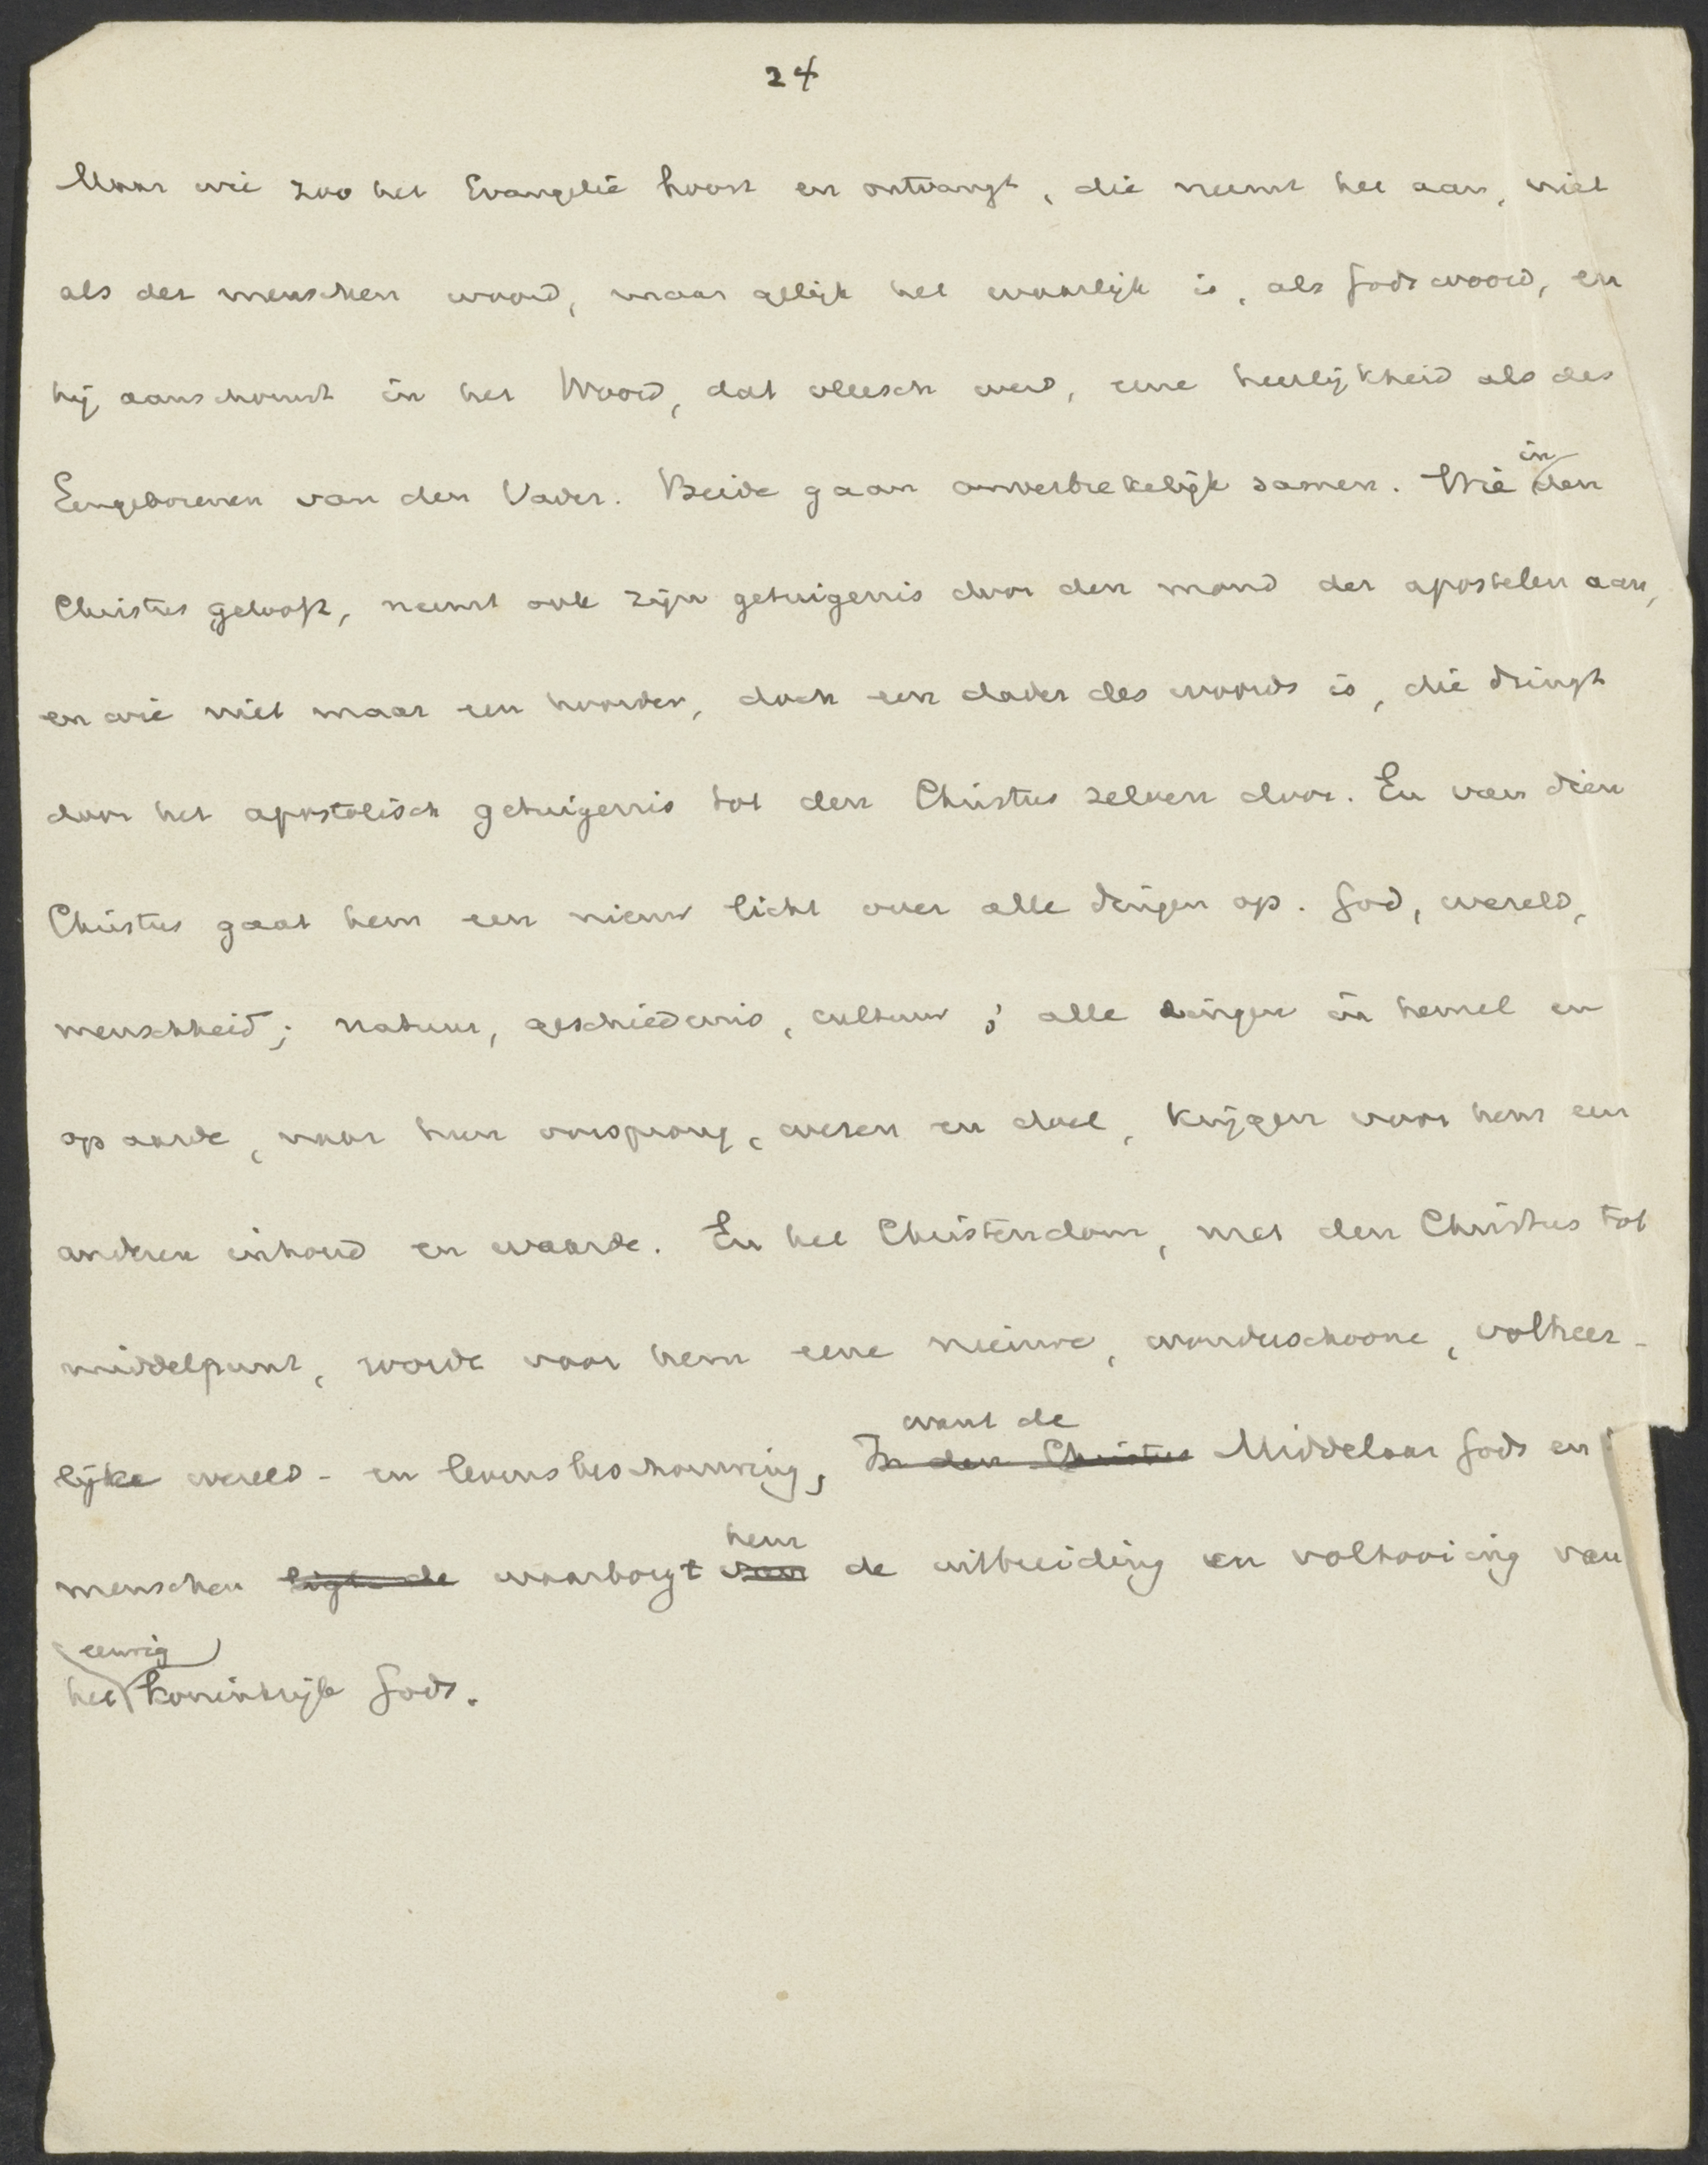 24
Maar wie zoo het Evangelie hoort en ontvangt, die neemt het aan, niet
als der menschen woord, maar gelijk het waarlijk is, als Gods woord, en
hij aanschouwt in het Woord, dat vleesch werd, eene heerlijkheid als des
Eengeborenen van den Vader. Beide gaan onverbrekelijk samen. Wie in den
Christus gelooft, neemt ook zijn getuigenis door den mond der apostelen aan,
en wie niet maar een hoorder, doch een dader des woords is, die dringt
door het apostolisch getuigenis tot den Christus zelven door. En van dien
Christus gaat hem een nieuw licht over alle dingen op. God, wereld,
menschheid; natuur, geschiedenis, cultuur; alle dingen in hemel en
op aarde, naar hun oorsprong, wezen en doel, krijgen voor hem een
anderen inhoud en waarde. En het Christendom, met den Christus tot
middelpunt, wordt voor hem eene nieuwe, wonderschoone, volheer-
want de
lijke wereld- en levensbeschouwing, In den Christus Middelaar Gods en
hem
menschen ligt de waarborgt van de uitbreiding en voltooiing van
eeuwig
het koninkrijk Gods.